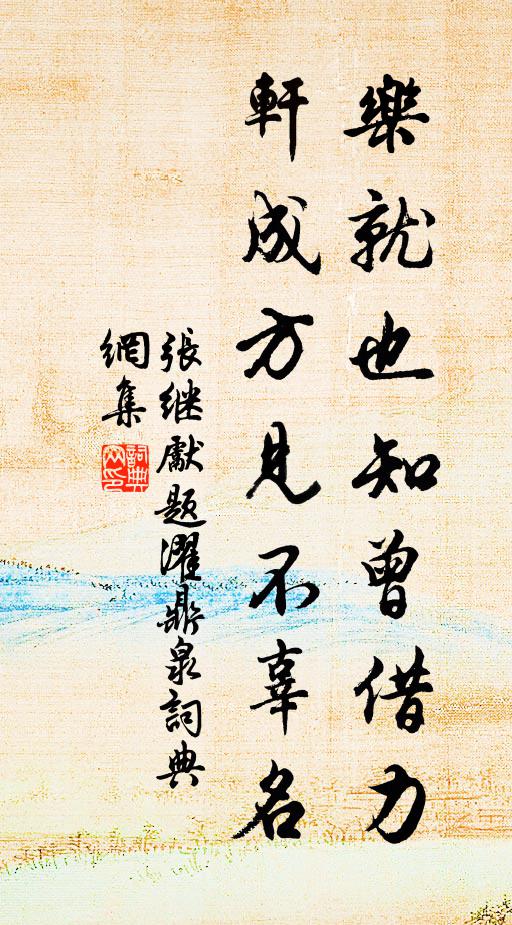 樂就也知曾借力
軒成方見不辜名
張继獻题濯鼎泉詞典
網集
詞典
网印